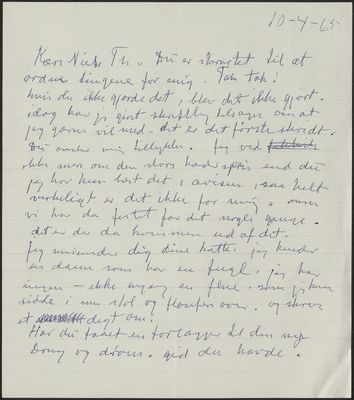 10-4-65
Kære Niels Th. Du er storartet til at
ordne tingene for mig. Tak tak!
hvis du ikke gjorde det, blev det ikke gjort.
idag har jeg gjort skriftlig tilsagn om at
jeg gerne vil med. det er det første skridt.
Du ønsker mig tillykke. Jeg ved
ikke mere om den store hæderspris end du
jeg har kun læst det i avisen, saa helt
virkeligt er det ikke for mig, men
vi har da festet for det nogle gange.
det er der da kommen ud af det.
Jeg misunder dig dine katte. jeg kender
en dame som har en fugl. jeg har
ingen - ikke engang en flue, som jeg kan
sidde i min stol og filosofere over. og skrive
et digt om.
Har du fundet en forlægger til din nye
Drøm og drøm. gid du havde.